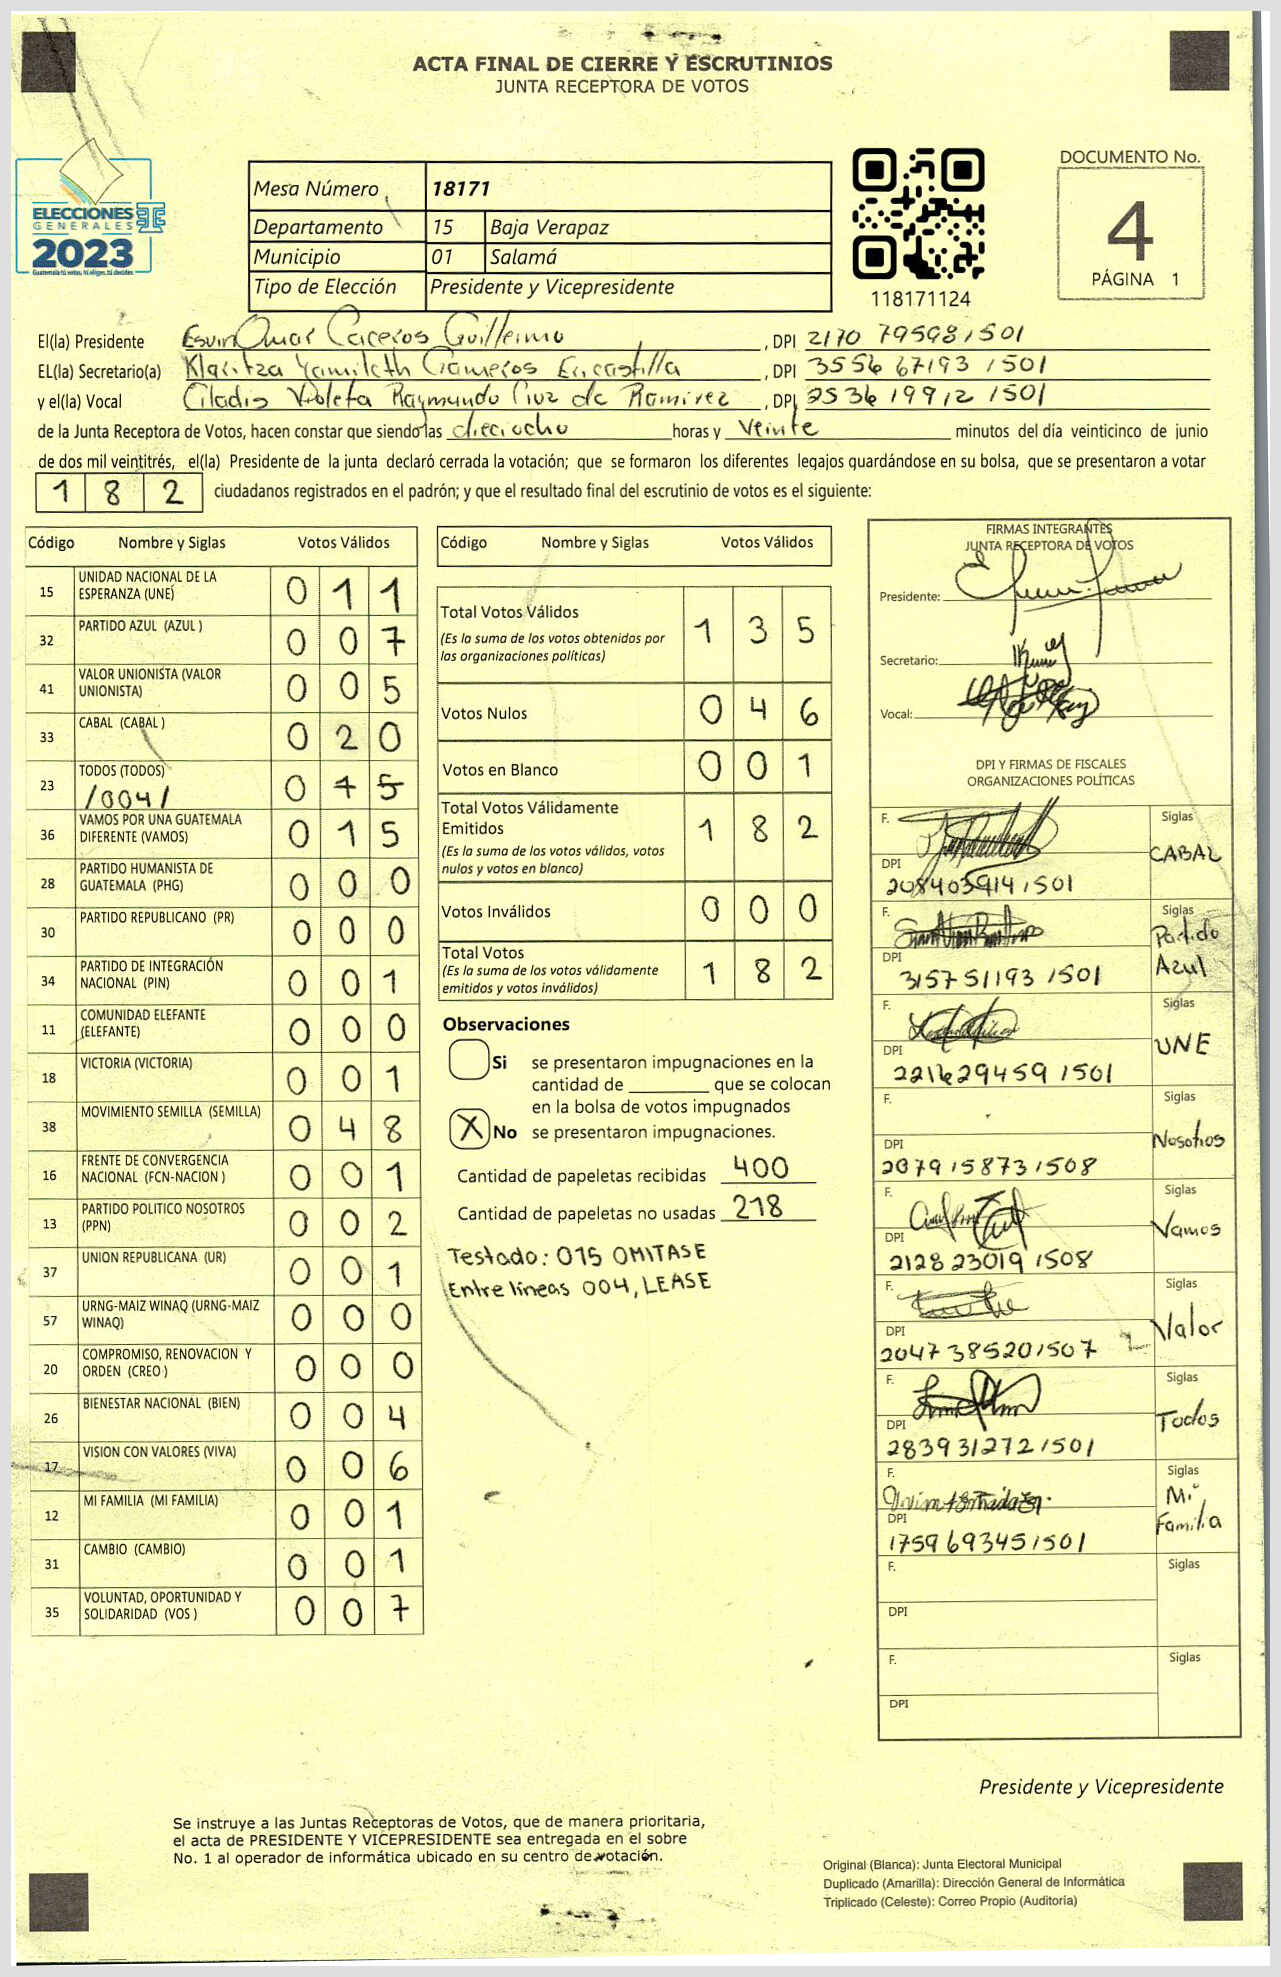 ACTA FINAL DE CIERRE Y ESCRUTINIOS
JUNTA RECEPTORA DE VOTOS
ELECCIONES
GENERALES
2023
Guatemala tú votas, tú eliges, tú decides
Mesa Número 18171
Departamento 15 Baja Verapaz
Municipio 01 Salamá
Tipo de Elección Presidente y Vicepresidente
118171124
DOCUMENTO No.
4
PÁGINA 1
El(la) Presidente Esvin Omar Caceros Guillermo, DPI 2170 79598 1501
EL(la) Secretario(a) Klaritza Yamileth Cisneros Encastilla, DPI 3556 67193 1501
y el(la) Vocal Gladis Violeta Raymundo Cruz de Ramirez, DPI 2536 19912 1501
de la Junta Receptora de Votos, hacen constar que siendo las dieciocho horas y veinte minutos del día veinticinco de junio
de dos mil veintitrés, el(la) Presidente de la junta declaró cerrada la votación; que se formaron los diferentes legajos guardándose en su bolsa, que se presentaron a votar
182 ciudadanos registrados en el padrón; y que el resultado final del escrutinio de votos es el siguiente:
Código Nombre y Siglas Votos Válidos
15 UNIDAD NACIONAL DE LA ESPERANZA (UNE) 011
32 PARTIDO AZUL (AZUL ) 007
41 VALOR UNIONISTA (VALOR UNIONISTA) 005
33 CABAL (CABAL ) 020
23 TODOS (TODOS) 015
/004/
36 VAMOS POR UNA GUATEMALA DIFERENTE (VAMOS) 015
28 PARTIDO HUMANISTA DE GUATEMALA (PHG) 000
30 PARTIDO REPUBLICANO (PR) 000
34 PARTIDO DE INTEGRACIÓN NACIONAL (PIN) 001
11 COMUNIDAD ELEFANTE (ELEFANTE) 000
18 VICTORIA (VICTORIA) 001
38 MOVIMIENTO SEMILLA (SEMILLA) 048
16 FRENTE DE CONVERGENCIA NACIONAL (FCN-NACION ) 001
13 PARTIDO POLITICO NOSOTROS (PPN) 002
37 UNION REPUBLICANA (UR) 001
57 URNG-MAIZ WINAQ (URNG-MAIZ WINAQ) 000
20 COMPROMISO, RENOVACION Y ORDEN (CREO ) 000
26 BIENESTAR NACIONAL (BIEN) 004
17 VISION CON VALORES (VIVA) 006
12 MI FAMILIA (MI FAMILIA) 001
31 CAMBIO (CAMBIO) 001
35 VOLUNTAD, OPORTUNIDAD Y SOLIDARIDAD (VOS ) 007
Código Nombre y Siglas Votos Válidos
Total Votos Válidos 135
(Es la suma de los votos obtenidos por
las organizaciones políticas)
Votos Nulos 046
Votos en Blanco 001
Total Votos Válidamente
Emitidos 182
(Es la suma de los votos válidos, votos
nulos y votos en blanco)
Votos Inválidos 000
Total Votos 182
(Es la suma de los votos válidamente
emitidos y votos inválidos)
Observaciones
Si se presentaron impugnaciones en la
cantidad de ________ que se colocan
en la bolsa de votos impugnados
X No se presentaron impugnaciones.
Cantidad de papeletas recibidas 400
Cantidad de papeletas no usadas 218
Testado: 015 OMITASE
Entre líneas 004, LEASE
FIRMAS INTEGRANTES
JUNTA RECEPTORA DE VOTOS
Presidente:
Secretario:
Vocal:
DPI Y FIRMAS DE FISCALES
ORGANIZACIONES POLÍTICAS
F. Siglas
CABAL
DPI
2084039141501
F. Siglas
Partido
Azul
DPI
315751193 1501
F. Siglas
UNE
DPI
2216294591501
F. Siglas
Nosotros
DPI
2079158731508
F. Siglas
Vamos
DPI
2128 23019 1508
F. Siglas
Valor
DPI
2047385201507
F. Siglas
Todos
DPI
2839312721501
F. Siglas
Mi
Familia
DPI
1759693451501
F. Siglas
DPI
F. Siglas
DPI
Presidente y Vicepresidente
Se instruye a las Juntas Receptoras de Votos, que de manera prioritaria,
el acta de PRESIDENTE Y VICEPRESIDENTE sea entregada en el sobre
No. 1 al operador de informática ubicado en su centro de votación.
Original (Blanca): Junta Electoral Municipal
Duplicado (Amarilla): Dirección General de Informática
Triplicado (Celeste): Correo Propio (Auditoría)